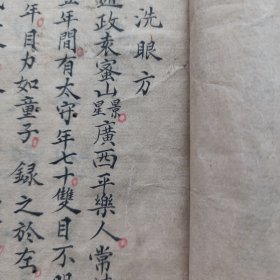 洗眼方
政袁蜜山景星廣西平樂人常
五年間有太守年七十雙目不明
年目力如童子 錄之於左